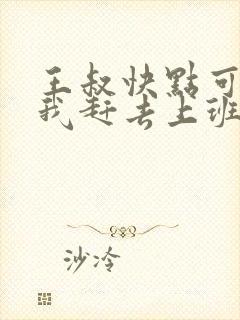 王叔快點可
我赶去上班
沙冷